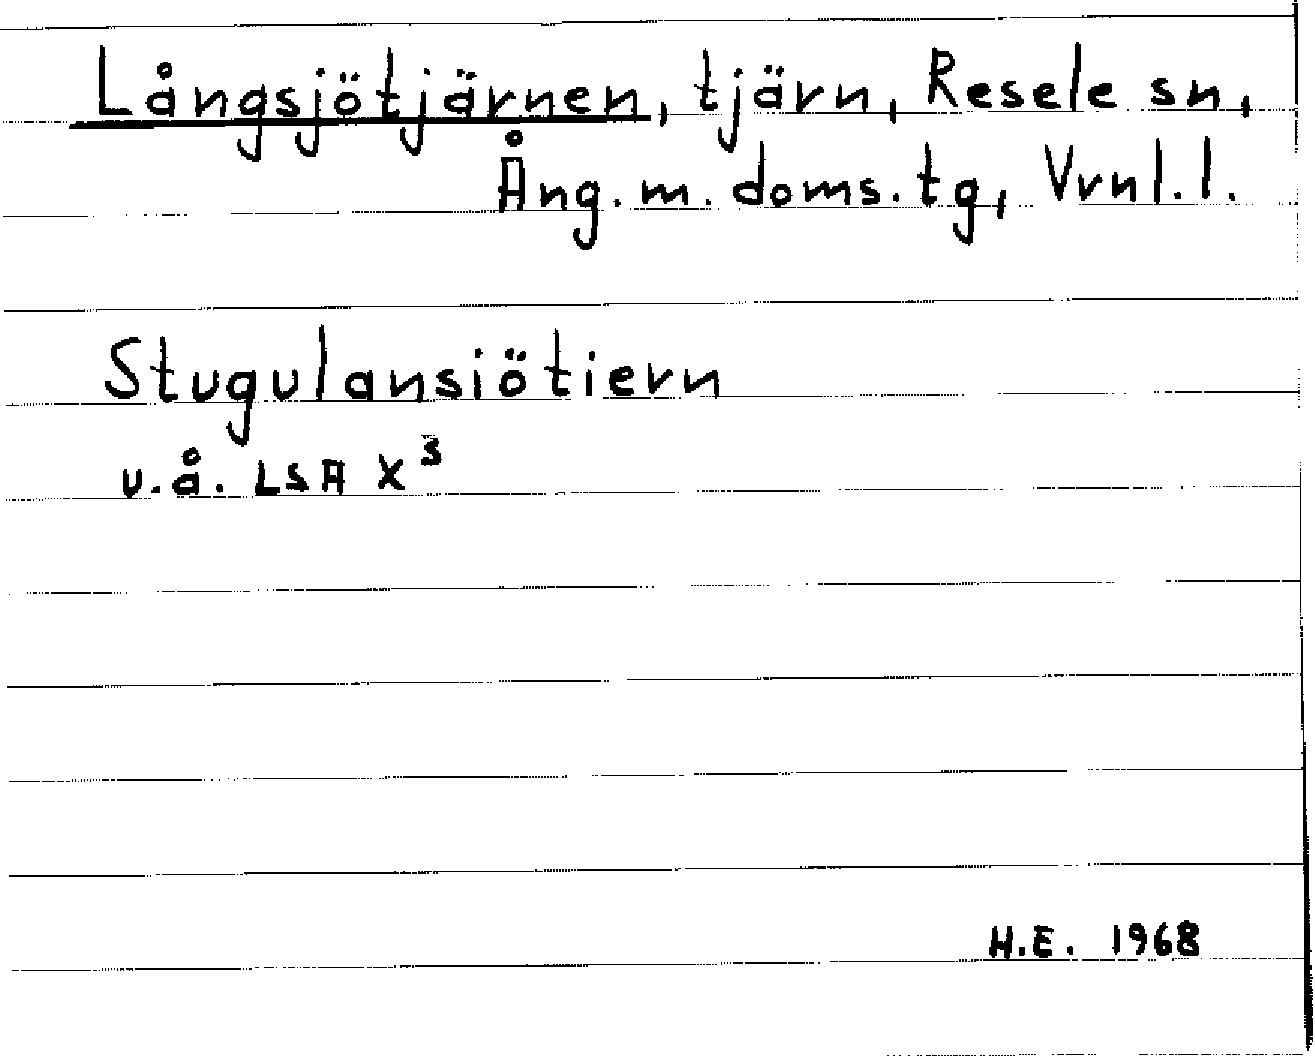 Långsjötjärnen, tjärn, Resele sn,
Ång. m. doms. tg, Vrnl. l.
Stugulansiötiern
u.å. LSA X³
H.E. 1968